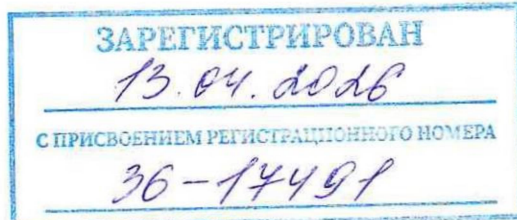 ЗАРЕГИСТРИРОВАН
13.04.2026
С ПРИСВОЕНИЕМ РЕГИСТРАЦИОННОГО НОМЕРА
36-17491